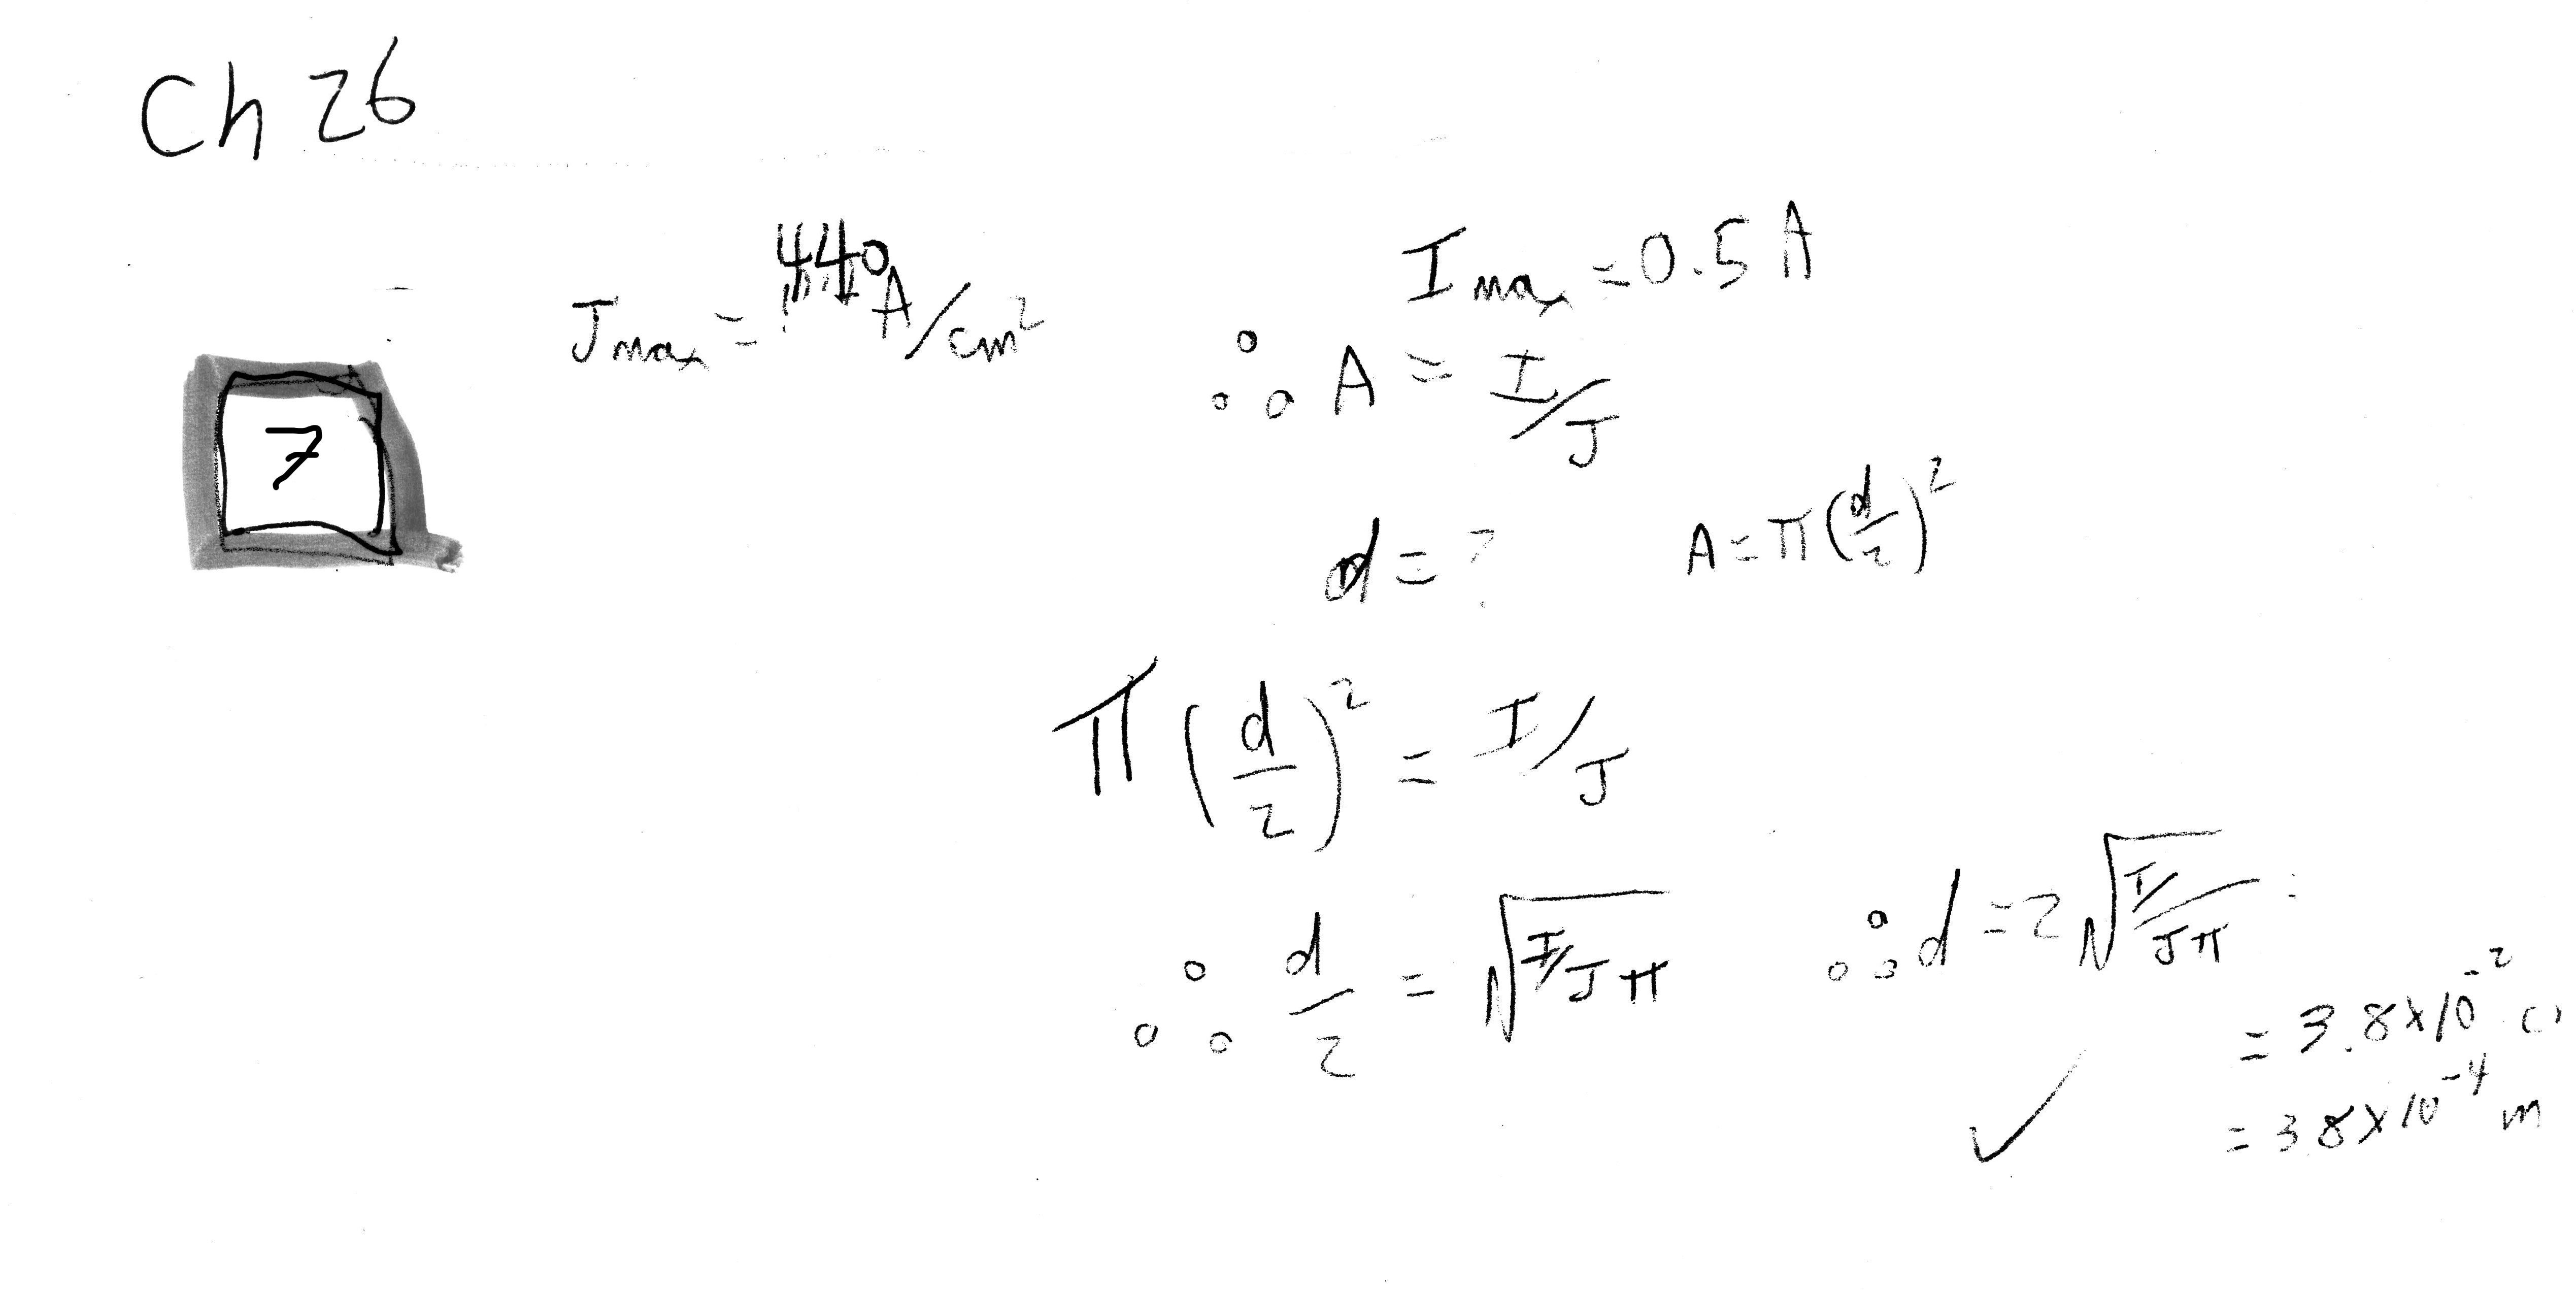 Ch 26
J max = 440 A/cm²
I max = 0.5 A
∴ A = I/J
7
d = ? A = π(d/2)²
π(d/2)² = I/J
∴ d/2 = √(I/Jπ) ∴ d = 2√(I/Jπ) =
= 3.8×10⁻² c
= 3.8×10⁻⁴ m